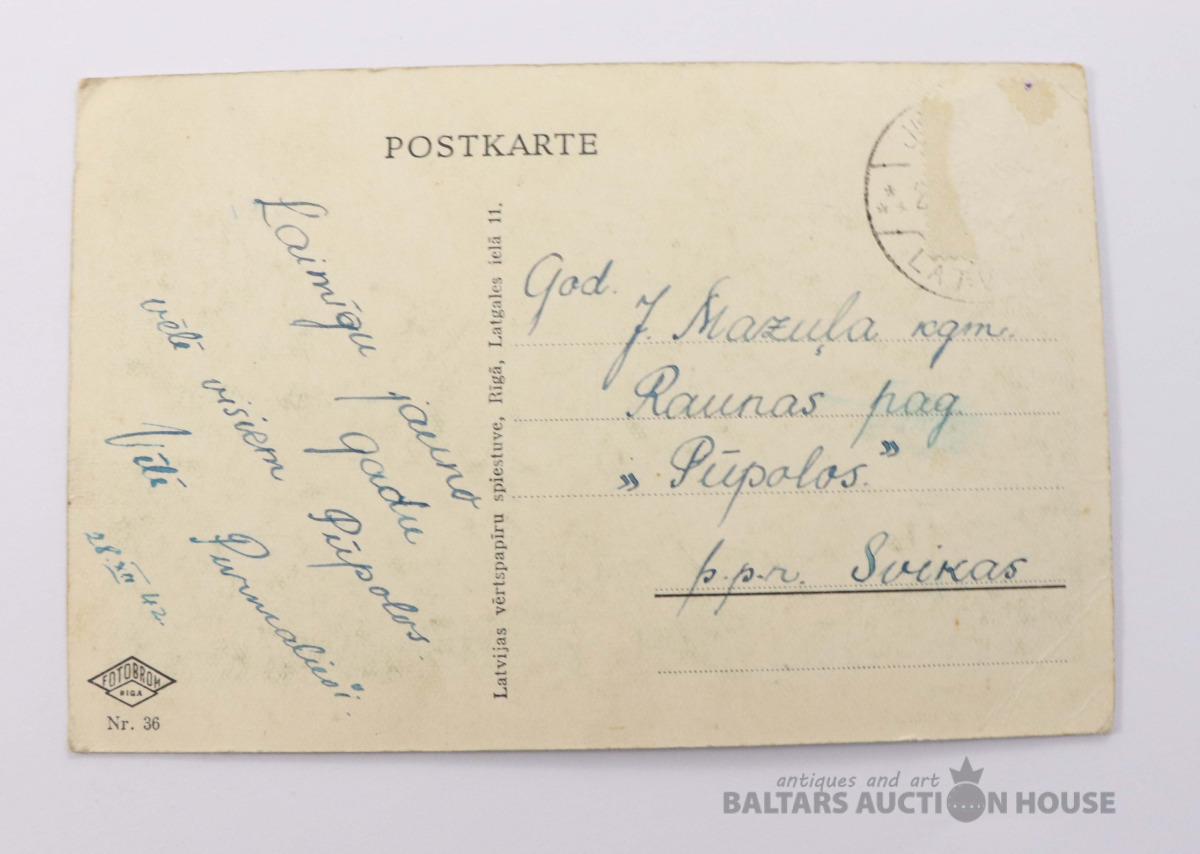 POSTKARTE
Laimīgu jauno
gadu
vēlē visiem Pūpolos.
Vēlē Purmalieši.
28.XII 42.
FOTOBROM
RIGA
Nr. 36
Latvijas vērtspapīru spiestuve, Rīgā, Latgales ielā 11.
LATV
God.
J. Mazuļa kgm.
Raunas pag.
„Pūpolos."
p.p.n. Svikas
antiques and art
BALTARS AUCTION HOUSE